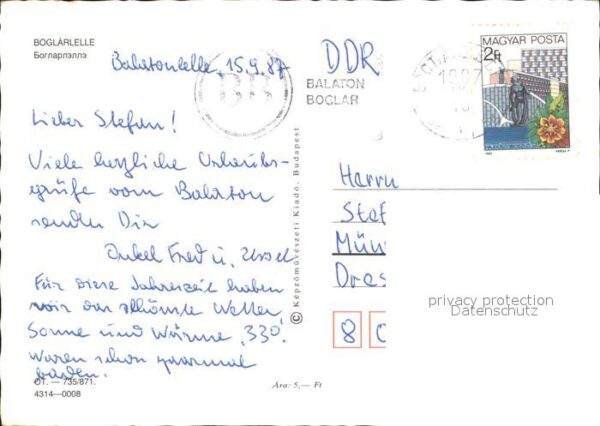 BOGLÁRLELLE
Богларлэллэ
Balatonlelle, 15.9.87
DDR
BALATON
BOGLAR
MAGYAR POSTA
2Ft
Lieber Stefan!
Viele herzliche Urlaubs-
grüße vom Balaton
senden Dir
Onkel Fred u. Ursel
Für diese Jahreszeit haben
wir das schönste Wetter,
Sonne und Wärme, 33°.
Waren schon paarmal
baden.
© Képzőművészeti Kiadó, Budapest
Herrn
Stef
Mün
Dres
8
privacy protection
Datenschutz
OT. — 735/871.
4314—0008
Ára: 5,— Ft